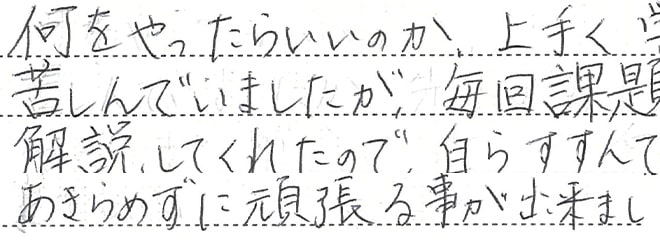 何をやったらいいのか、上手く
苦しんでいましたが、毎回課題
解説してくれたので、自らすすんで
あきらめずに頑張る事が出来まし